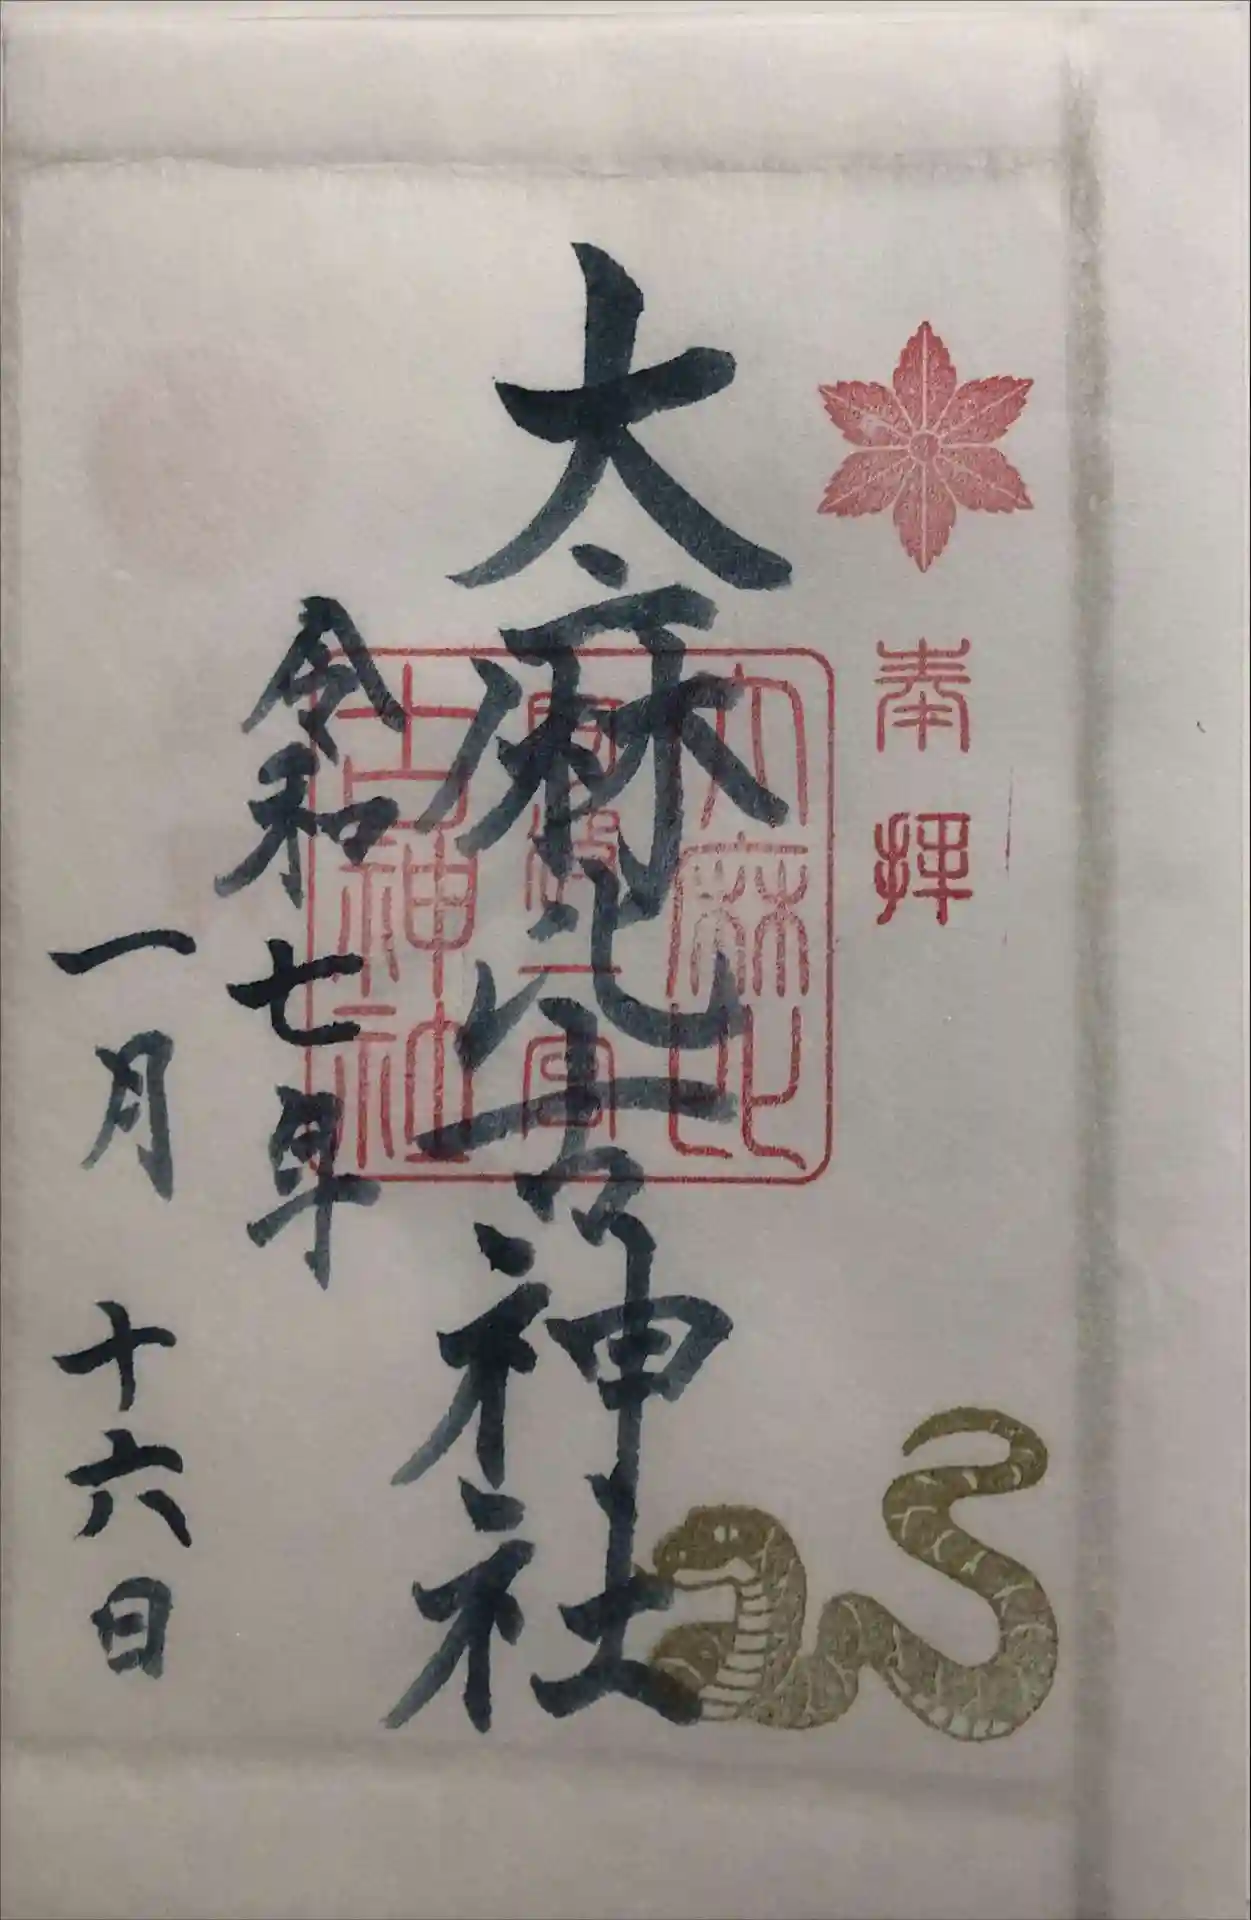 奉拝
大麻比古神社
大麻比
阿波一宮
古神社
令和七年
一月十六日